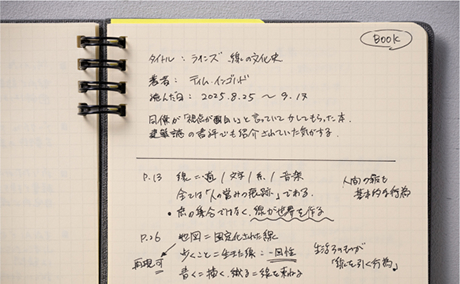 BOOK
タイトル : ラインズ 線の文化史
著者 : ティム・インゴルド
読んだ日 : 2025.8.25 〜 9.14
が「視点が面白い」と言っていて かしてもらった本.
の書評でも紹介されていた気がする.
P.13 線 = 道 / 文字 / 糸 / 音楽
全ては「人の営みの痕跡」である.
• 点の集合ではなく、線が世界を作る
人間の最も
基本的な行為
P.26 地図 = 固定化された線
再現可
歩くこと = 生きた線 : 一回性
書く = 描く、織る = 線を重ねる
生きることが
「線を引く行為」